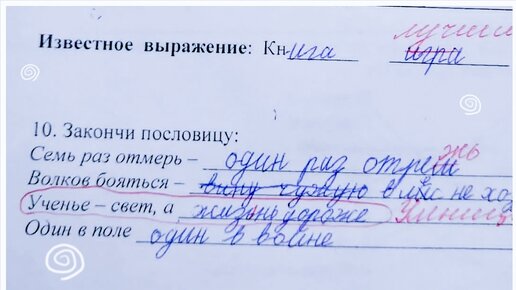 лучши
Известное выражение: Книга игра
10. Закончи пословицу:
жь
Семь раз отмерь – один раз
Волков бояться – вину чужую в лес не хо
Ученье – свет, а жизнь дороже Умниц
Один в поле один в войне